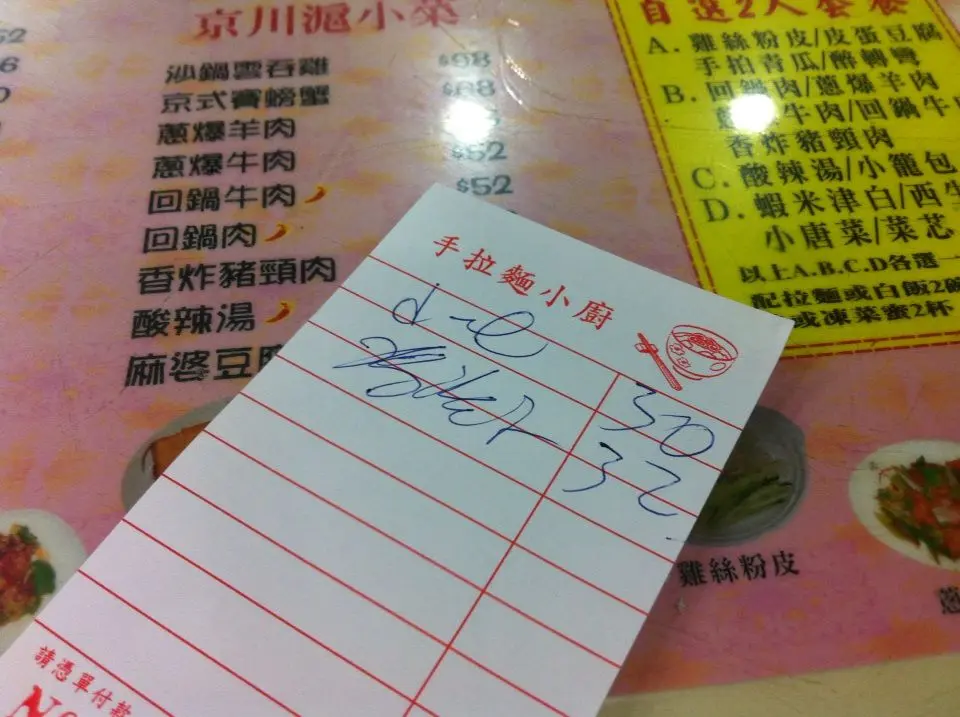 京川滬小菜
沙鍋雲吞雞 $98
京式賽螃蟹 $68
蔥爆羊肉
蔥爆牛肉 $52
回鍋牛肉 $52
回鍋肉
香炸豬頸肉
酸辣湯
麻婆豆腐
自選2人套餐
A. 雞絲粉皮/皮蛋豆腐
手拍青瓜/醉轉彎
B. 回鍋肉/蔥爆羊肉
牛肉/回鍋牛
香炸豬頸肉
C. 酸辣湯/小籠包
D. 蝦米津白/西生
小唐菜/菜芯
以上A.B.C.D各選一
配拉麵或白飯2碗
或凍菜蜜2杯
手拉麵小廚
30
32
請憑單付款
雞絲粉皮